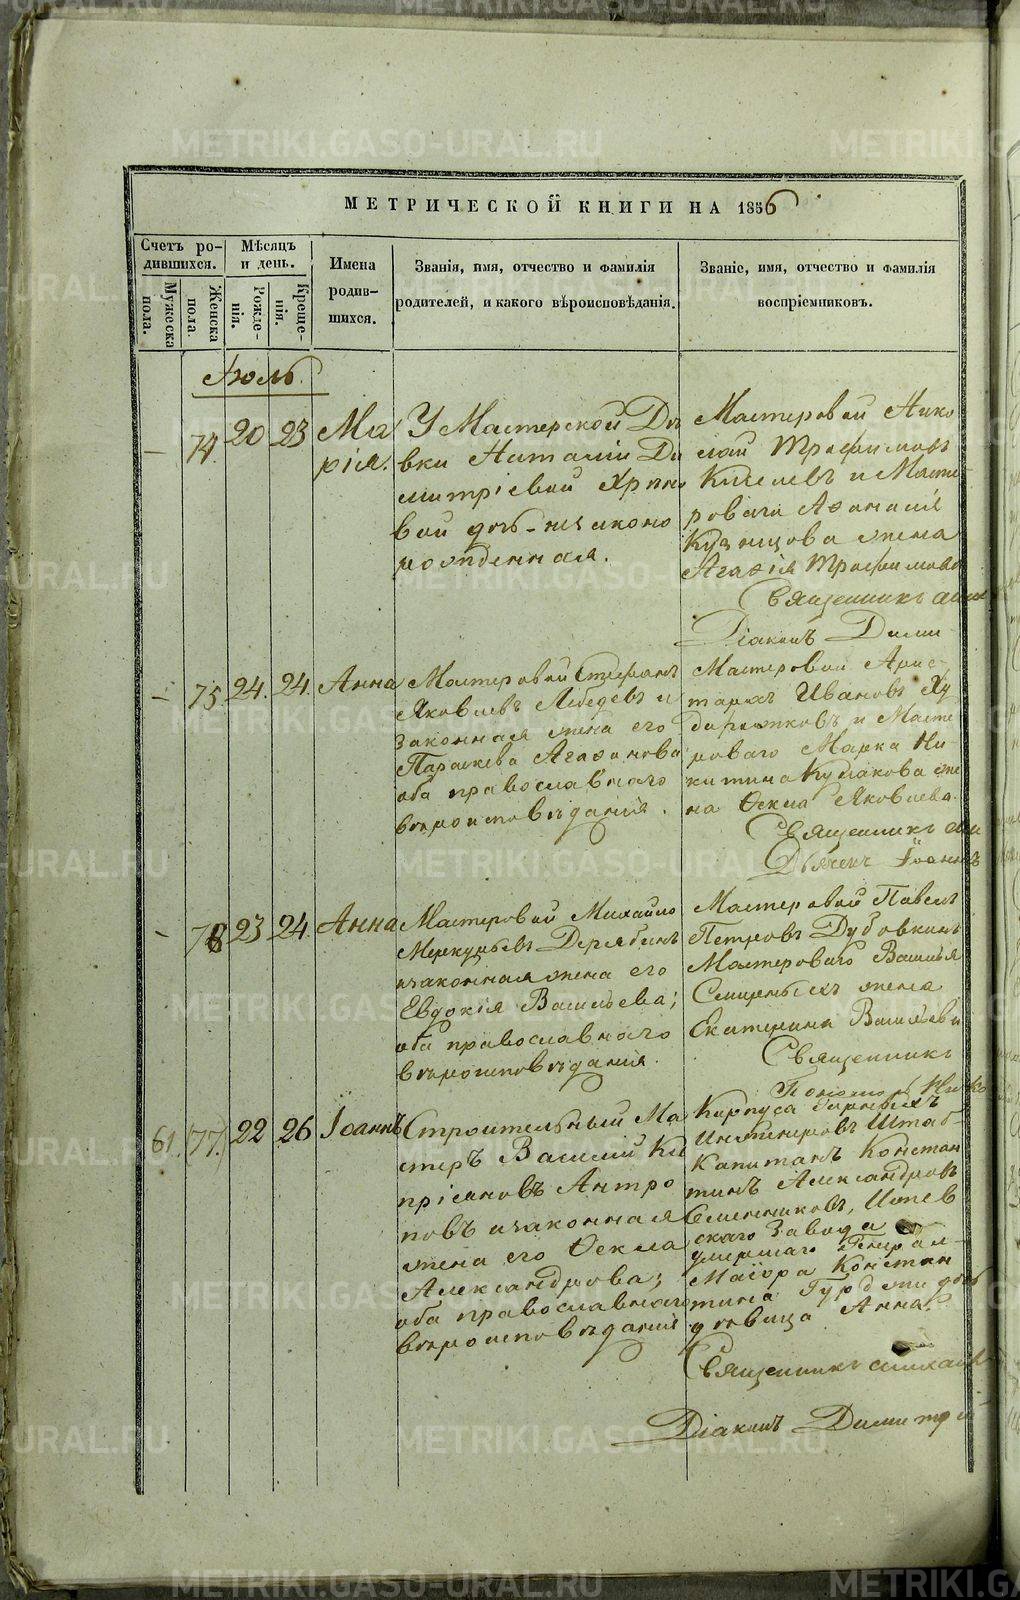 МЕТРИЧЕСКОЙ КНИГИ НА 1856
Счетъ ро-
дившихся.
Мѣсяцъ
и день.
Мужеска
пола.
Женска
пола.
Рожде-
нія.
Креще-
нія.
Имена
родив-
шихся.
Званія, имя, отчество и фамилія
родителей, и какого вѣроисповѣданія.
Званіе, имя, отчество и фамилія
воспріемниковъ.
Іюль.
— 74 20 23
Ма
рія.
У Мастерской Дѣ
вки Наталіи Ди
митріевой
вой дочь незаконо
рожденная.
Мастеровой Нико
лай Трофимовъ
Киселевъ и Масте
роваго Аѳанасія
Кузнецова жена
Агаѳія Трофимова
Священникъ
Діаконъ Дими
— 75 24. 24. Анна
Мастеровой Стефанъ
Яковлевъ Лебедевъ и
законная жена его
Параскева Агаѳонова
оба православнаго
вѣроисповѣданія.
Мастеровой Арис-
тархъ Ивановъ Ху
дорожковъ и Масте
роваго Марка Ни
китина Кулакова же
на Ѳекла Яковлева.
Священникъ
Дьячекъ Іоаннъ
— 76 23 24. Анна
Мастеровой Михайло
Меркурьевъ Дерябинъ
и законная жена его
Евдокія Васильева;
оба православнаго
вѣроисповѣданія.
Мастеровой Павелъ
Петровъ Дубовкинъ
Мастероваго Василья
Смирныхъ жена
Екатерина Васильева
Священникъ
Пономарь Нико
61. (77.) 22 26 Іоаннъ
Строительный Ма
стеръ Василій Ки
пріяновъ Антро
повъ и законная
жена его Ѳекла
Александрова;
оба православнаго
вѣроисповѣданія
Корпуса Горныхъ
Инженеровъ Штаб-
Капитанъ Констан
тинъ Александровъ
Семенниковъ, Ижев
скаго Завода
умершаго Генерал-
Маіора Констан
тина дочь
дѣвица Анна.
Священникъ Михаилъ
Діаконъ Димитрі
METRIKI.GASO-URAL.RU